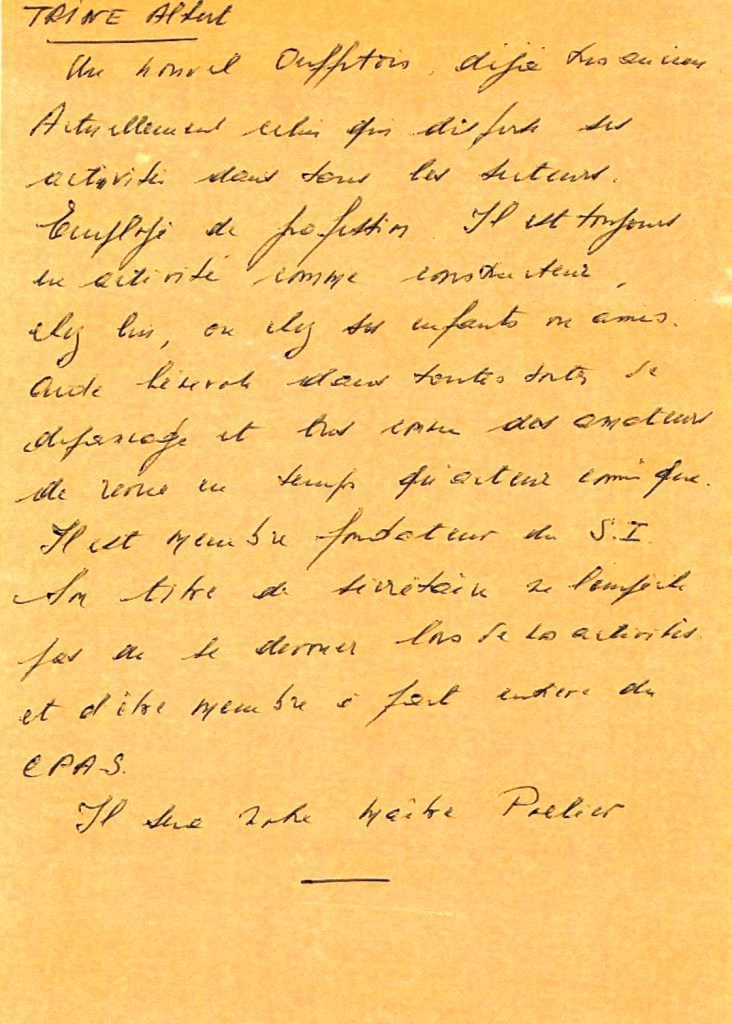 TRINE Albert
Un nouvel Ouffetois, déjà très ancien
Actuellement celui qui disperse ses
activités dans tous les secteurs.
Employé de profession Il est toujours
en activité comme constructeur,
chez lui, ou chez ses enfants ou amis.
Aide bénévole dans toutes sortes de
dépannage et très connu des amateurs
de revue en temps qu'acteur comique.
Il est membre fondateur du S.I.
Son titre de secrétaire ne l'empêche
pas de se donner lors de nos activités.
et d'être membre à part entière du
CPAS.
Il sera notre Maître